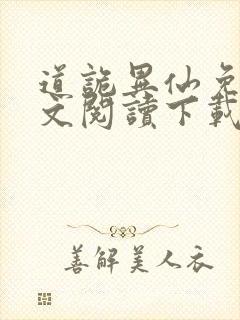 道詭異仙免
文閱讀下載
善解美人衣